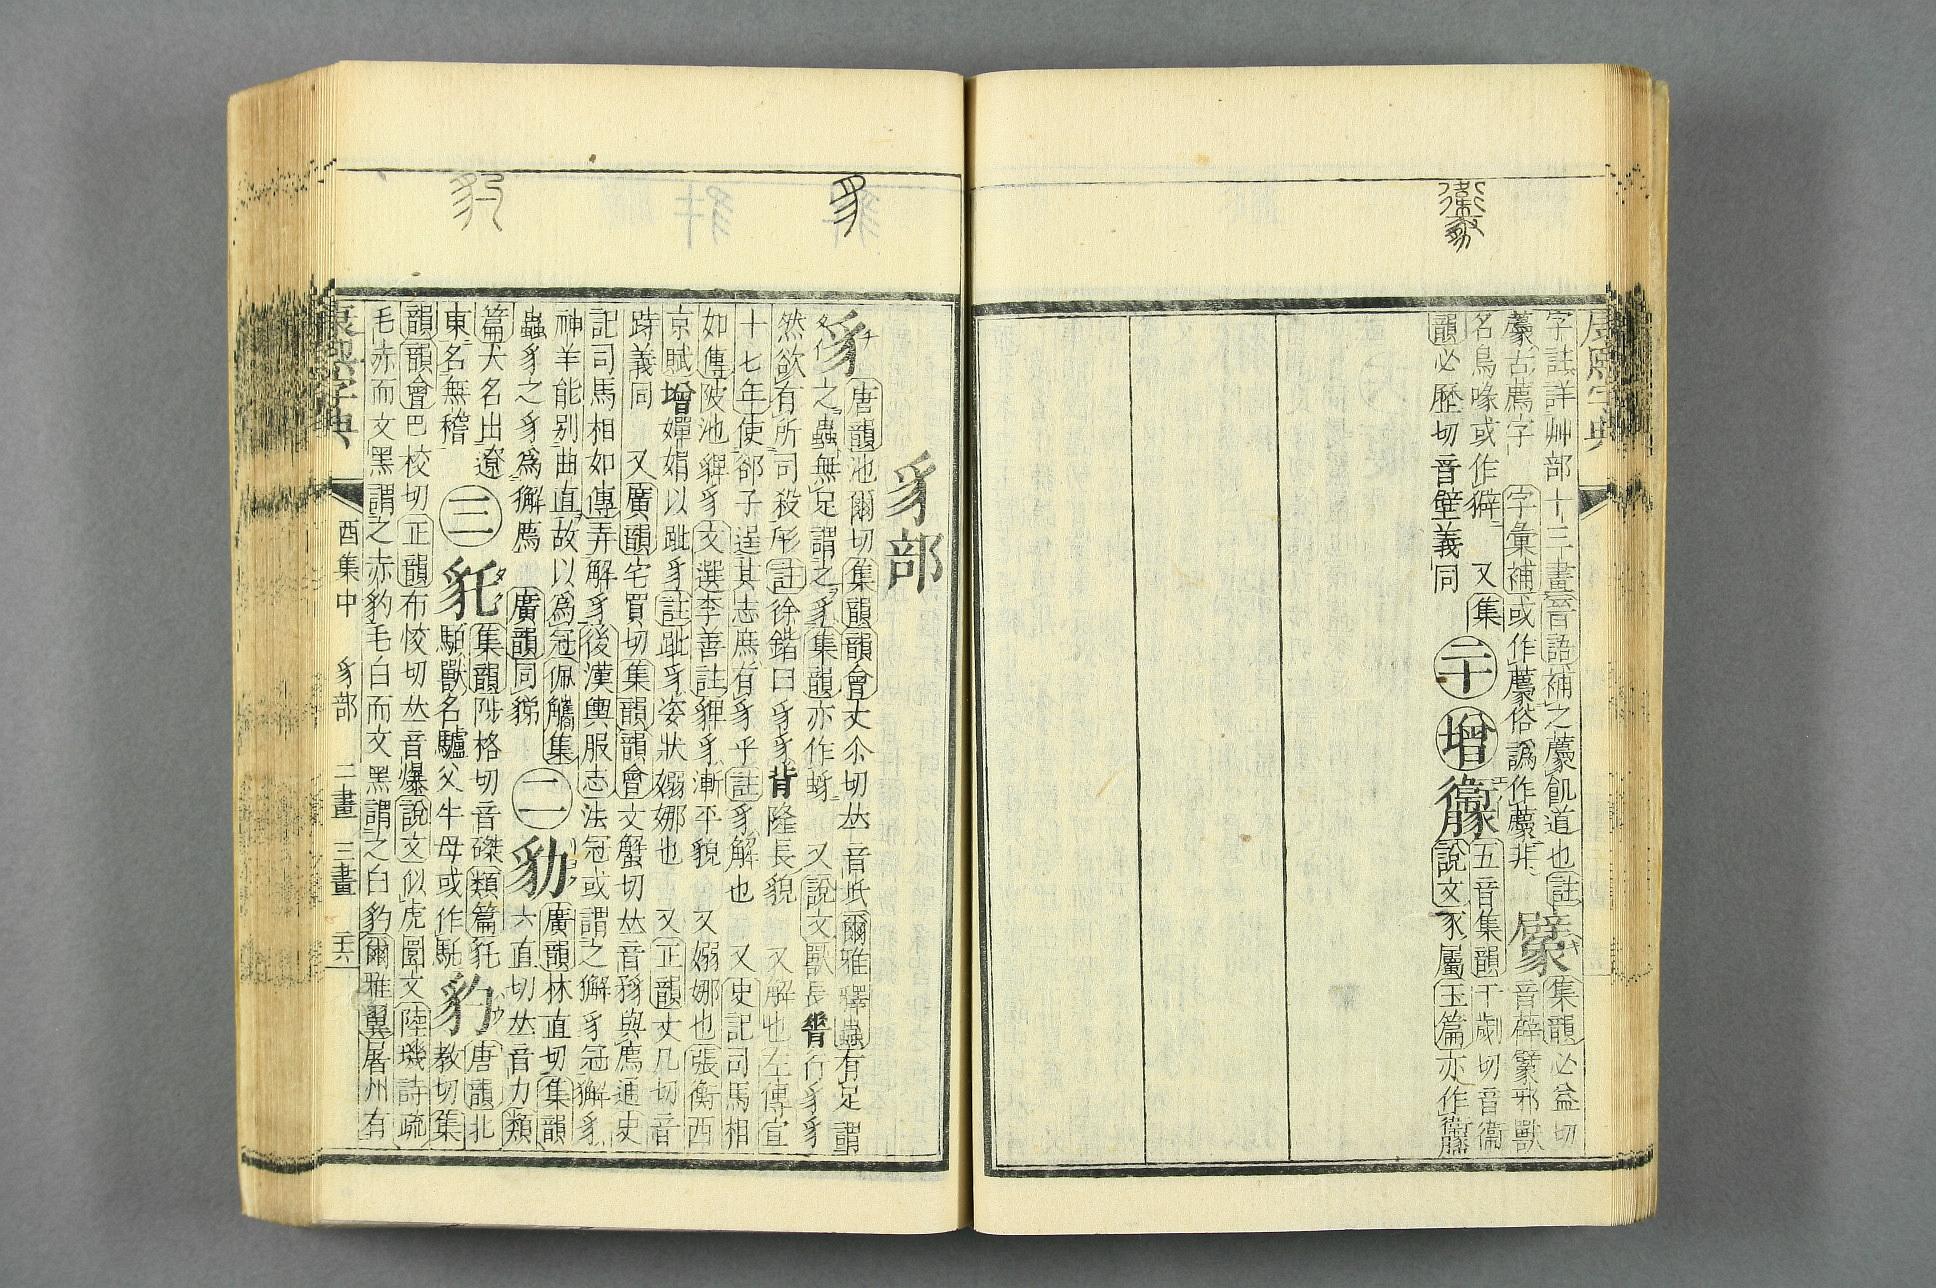 字註詳艸部十三畫晉語補之蘪飢道也註
蘪古薦字 字彙補或作蘪俗譌作蘪非
名鳥喙或作㺗 又集
韻必歷切音壁義同
集韻必益切
音薜䥯邪獸
二十
增
五音集韻于歲切音衞
說文豕屬玉篇亦作
豸部
豸
唐韻池爾切集韻韻會丈尒切𠀤音㢋爾雅釋蟲有足謂
之蟲無足謂之豸集韻亦作蛥 又說文獸長脊行豸豸
然欲有所司殺形註徐鍇曰豸豸背隆長貌 又解也左傳宣
十七年使郤子逞其志庶有豸乎註豸解也 又史記司馬相
如傳陂池貏豸文選李善註貏豸漸平貌 又嫋娜也張衡西
京賦增嬋娟以跐豸註跐豸姿狀嫋娜也 又正韻丈几切音
跱義同 又廣韻宅買切集韻韻會文蟹切𠀤音豥與廌通史
記司馬相如傳弄解豸後漢輿服志法冠或謂之獬豸冠獬豸
神羊能别曲直故以爲冠佩觿集
蟲豸之豸爲獬廌 廣韻同豵
二
豞
廣韻林直切集韻
六直切𠀤音力類
篇犬名出遼
東名無稽
三
豻
集韻陟格切音磔類篇豻
䮧獸名驢父牛母或作馲
豹
唐韻北
教切集
韻韻會巴校切正韻布恔切𠀤音爆說文似虎圜文陸璣詩疏
毛赤而文黑謂之赤豹毛白而文黑謂之白豹爾雅翼屠州有
康熙字典
酉集中 豸部 二畫 三畫